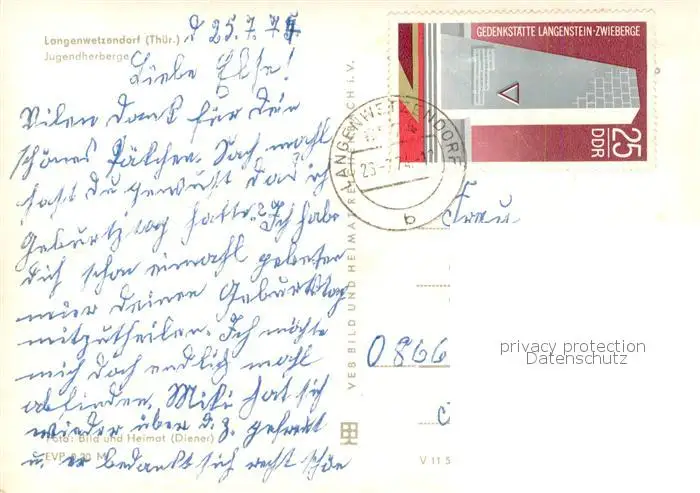 Langenwetzendorf (Thür.)
Jugendherberge
d 25.7.75
Liebe Else!
Vilen Dank für dein
schönes Päkchen. Sag mahl
hast du gewußt das ich
Geburtztag hatte? Ich habe
dich schon einmahl gebeten
mier deinen Geburtstag
mitzutheilen. Ich möchte
mich doch endlich mahl
abfinden. Miki hat sich
wieder über d. z. gefreut
u. er bedankt sich recht schön
Foto: Bild und Heimat (Diener)
EVP 0,20 M
VEB BILD UND HEIMAT REICHENBACH i. V.
V 11 5
GEDENKSTÄTTE LANGENSTEIN-ZWIEBERGE
25
DDR
LANGENWETZENDORF
a
Frau
0866
privacy protection
Datenschutz